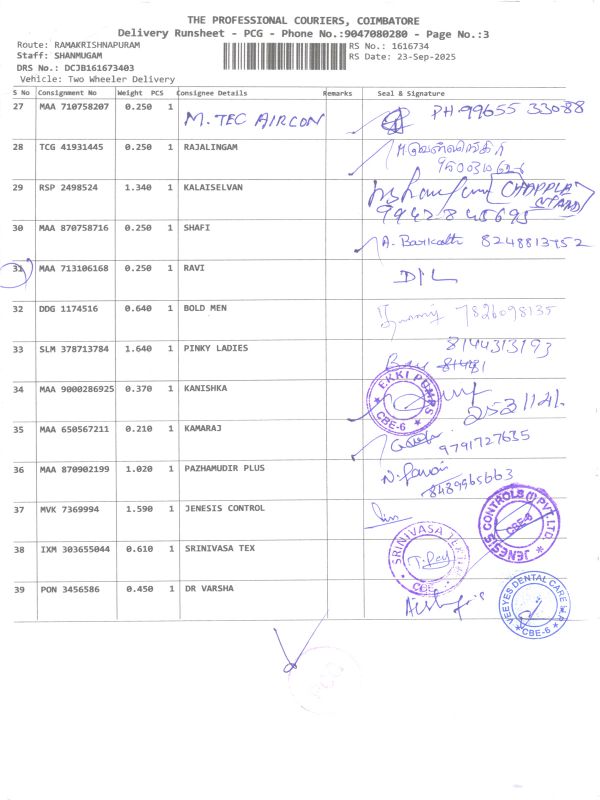 THE PROFESSIONAL COURIERS, COIMBATORE
Delivery Runsheet - PCG - Phone No.:9047080280 - Page No.:3
Route: RAMAKRISHNAPURAM RS No.: 1616734
Staff: SHANMUGAM RS Date: 23-Sep-2025
DRS No.: DCJB161673403
Vehicle: Two Wheeler Delivery
S No Consignment No Weight PCS Consignee Details Remarks Seal & Signature
27 MAA 710758207 0.250 1 M. TEC AIRCON PH-99655 33088
28 TCG 41931445 0.250 1 RAJALINGAM
29 RSP 2498524 1.340 1 KALAISELVAN
9942845695
30 MAA 870758716 0.250 1 SHAFI
A. Barkath 8248813752
31 MAA 713106168 0.250 1 RAVI D/L
32 DDG 1174516 0.640 1 BOLD MEN 7826098135
33 SLM 378713784 1.640 1 PINKY LADIES 8144313193
34 MAA 9000286925 0.370 1 KANISHKA EKKI PUMPS CBE-6
2531141
35 MAA 650567211 0.210 1 KAMARAJ
9791727635
36 MAA 870902199 1.020 1 PAZHAMUDIR PLUS
8489965663
37 MVK 7369994 1.590 1 JENESIS CONTROL JENESIS CONTROLS (I) PVT. LTD. CBE-6
38 IXM 303655044 0.610 1 SRINIVASA TEX SRINIVASA CBE
39 PON 3456586 0.450 1 DR VARSHA VEEYES DENTAL CARE CBE-6
PCG